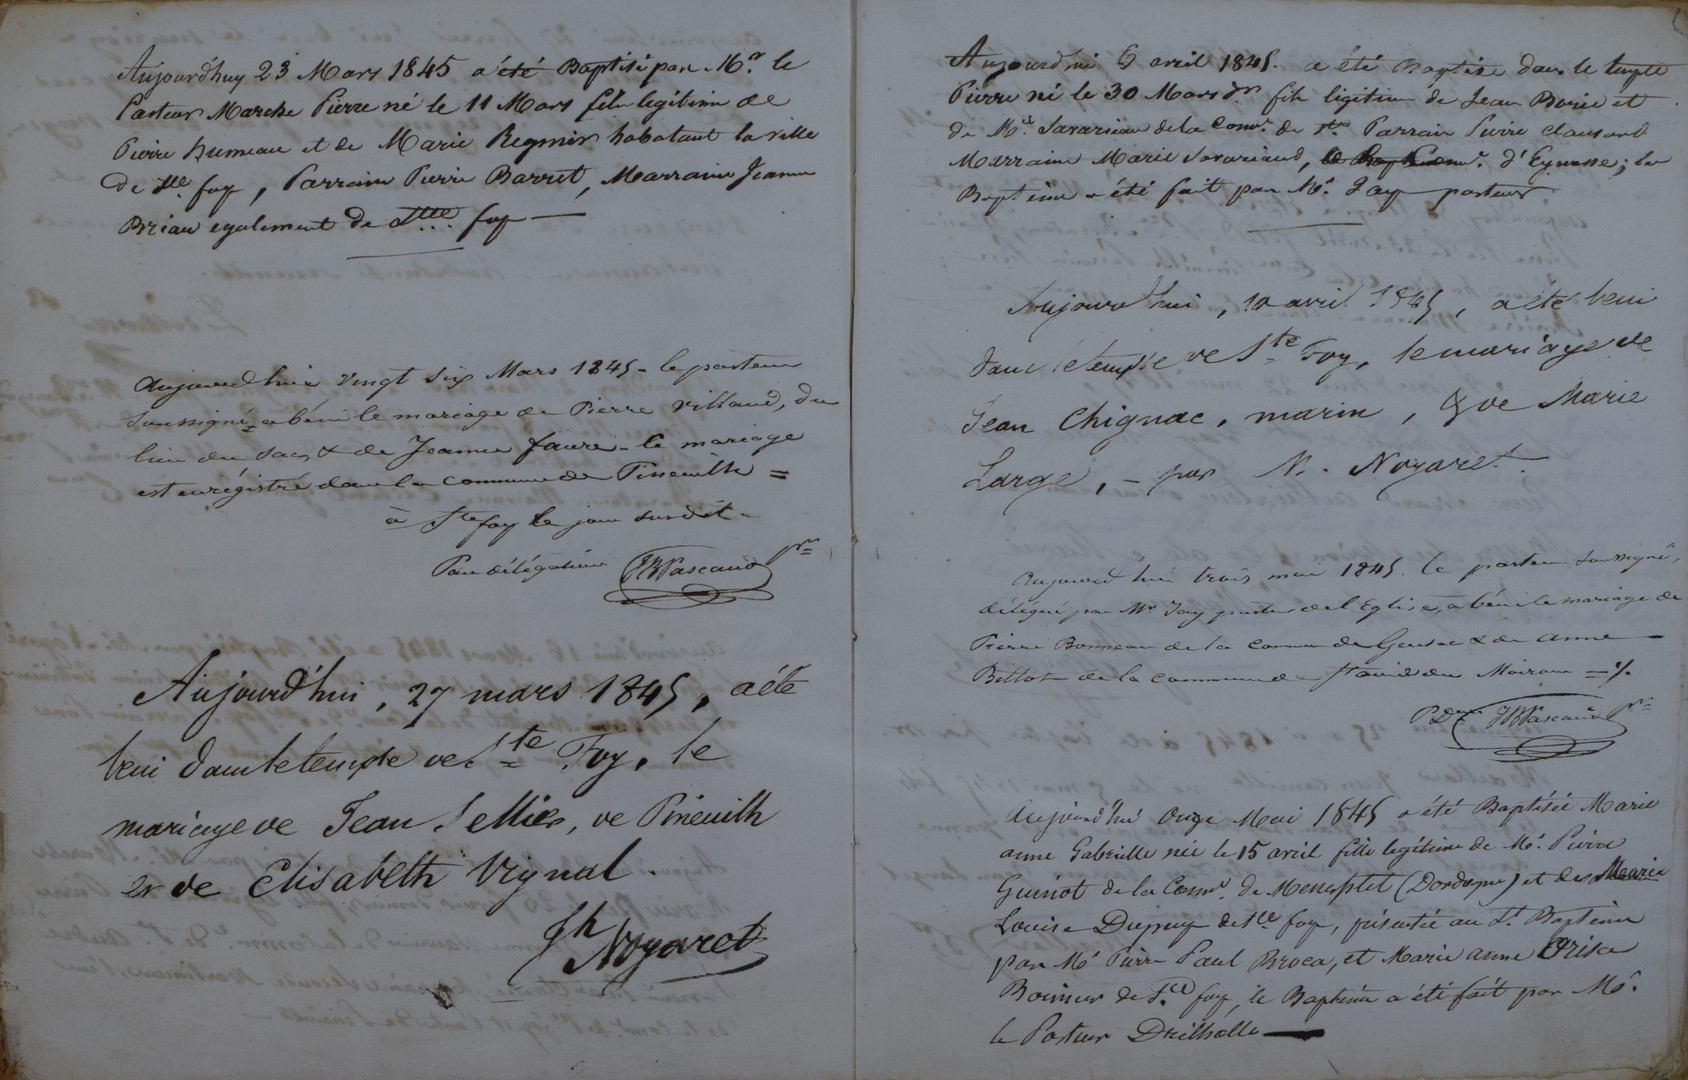 Aujourd'huy 23 Mars 1845 a été Baptisé par Mr. le
Pasteur Marche Pierre né le 11 Mars fils legitime de
Pierre Humeau et de Marie Regnier habatant la ville
de Ste. foy, Parrain Pierre Barret, Marraine Jeanne
Briau egalement de Ste foy
Aujourd'hui vingt six Mars 1845 - le pasteur
Soussigné a béni le mariage de Pierre Villaud, du
lieu du Sac, & de Jeanne faure - le mariage
est enrégistré dans la commune de Pineuilh =
à Ste foy le jour susdit -
Par délégation JBPascaud pr
Aujourd'hui, 27 mars 1845, a été
beni dans le temple de Ste Foy, le
mariage de Jean Sellier, de Pineuilh
et de Elisabeth Vignal.
Jh Nogaret
Aujourd'hui 6 avril 1845. a été Baptisé dans le temple
Pierre né le 30 Mars dr. fils légitime de Jean Borie et
de Mie Savariaud de la Comne. de Ste Parrain Pierre Clausard
Marraine Marie Savariaud, d'Eynesse; le
Baptême a été fait par Mr. Jay pasteur
Aujourd'hui, 10 avril 1845, a été beni
dans le temple de Ste Foy, le mariage de
Jean Chignac, marin, & de Marie
Large, - par M. Nogaret.
Aujourd'hui trois mai 1845. le pasteur soussigné,
délégué par Mr Jay pasteur de l'Eglise, a béni le mariage de
Pierre Bonneau de la commune de Gensac & de Anne
Billot de la commune de St avid du Moiron = %.
P Don JBPascaud pr
Aujourd'hui Onze Mai 1845 a été Baptisée Marie
anne Gabrielle née le 15 avril fille legitime de Mr. Pierre
Guinot de la Comne. de Menesplet (Dordogne) et de Marie
Louise Dupuy de Ste foy, présentée au St. Baptême
par Mr Pierre Paul Broca, et Marie anne
de Ste foy, le Baptême a été fait par Mr.
le Pasteur Drilholle